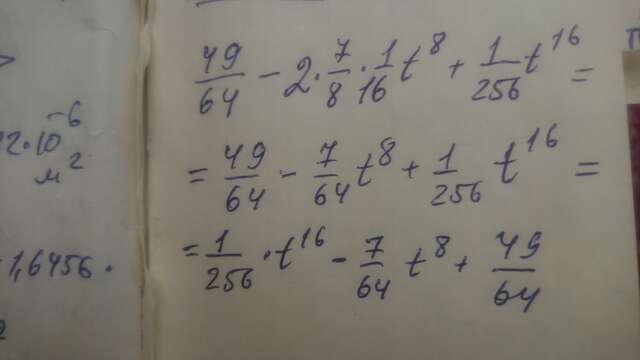 49/64 - 2·7/8·1/16 t⁸ + 1/256 t¹⁶ =
= 49/64 - 7/64 t⁸ + 1/256 t¹⁶ =
= 1/256 · t¹⁶ - 7/64 t⁸ + 49/64
2·10⁻⁶
м²
1,6456·